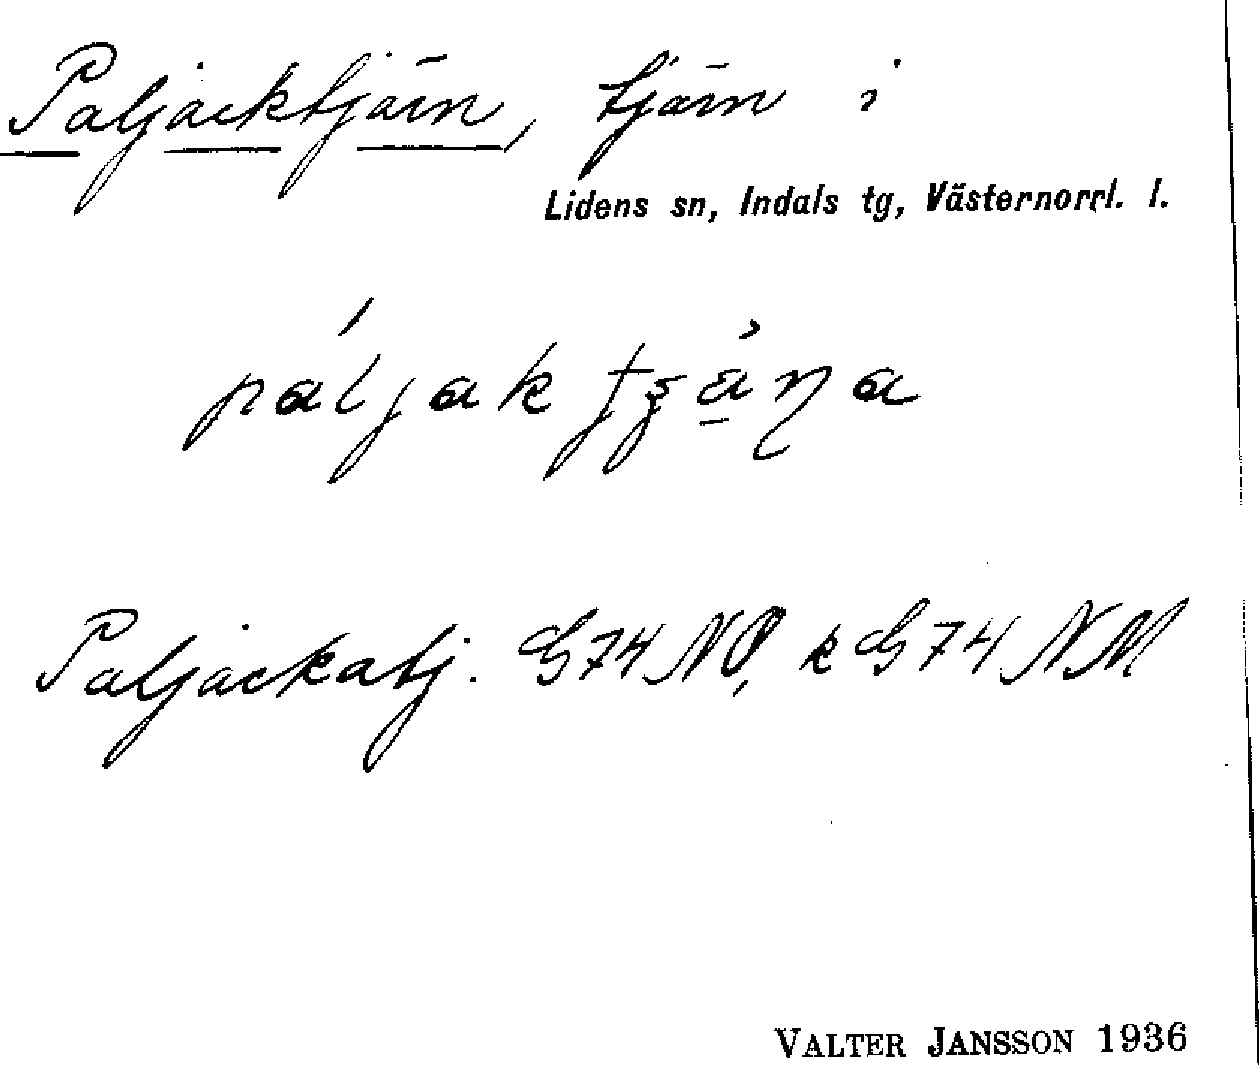 Paljacktjärn, tjärn i
Lidens sn, Indals tg, Västernorrl. l.
Paljackatj. G74NO, k G74NM
VALTER JANSSON 1936